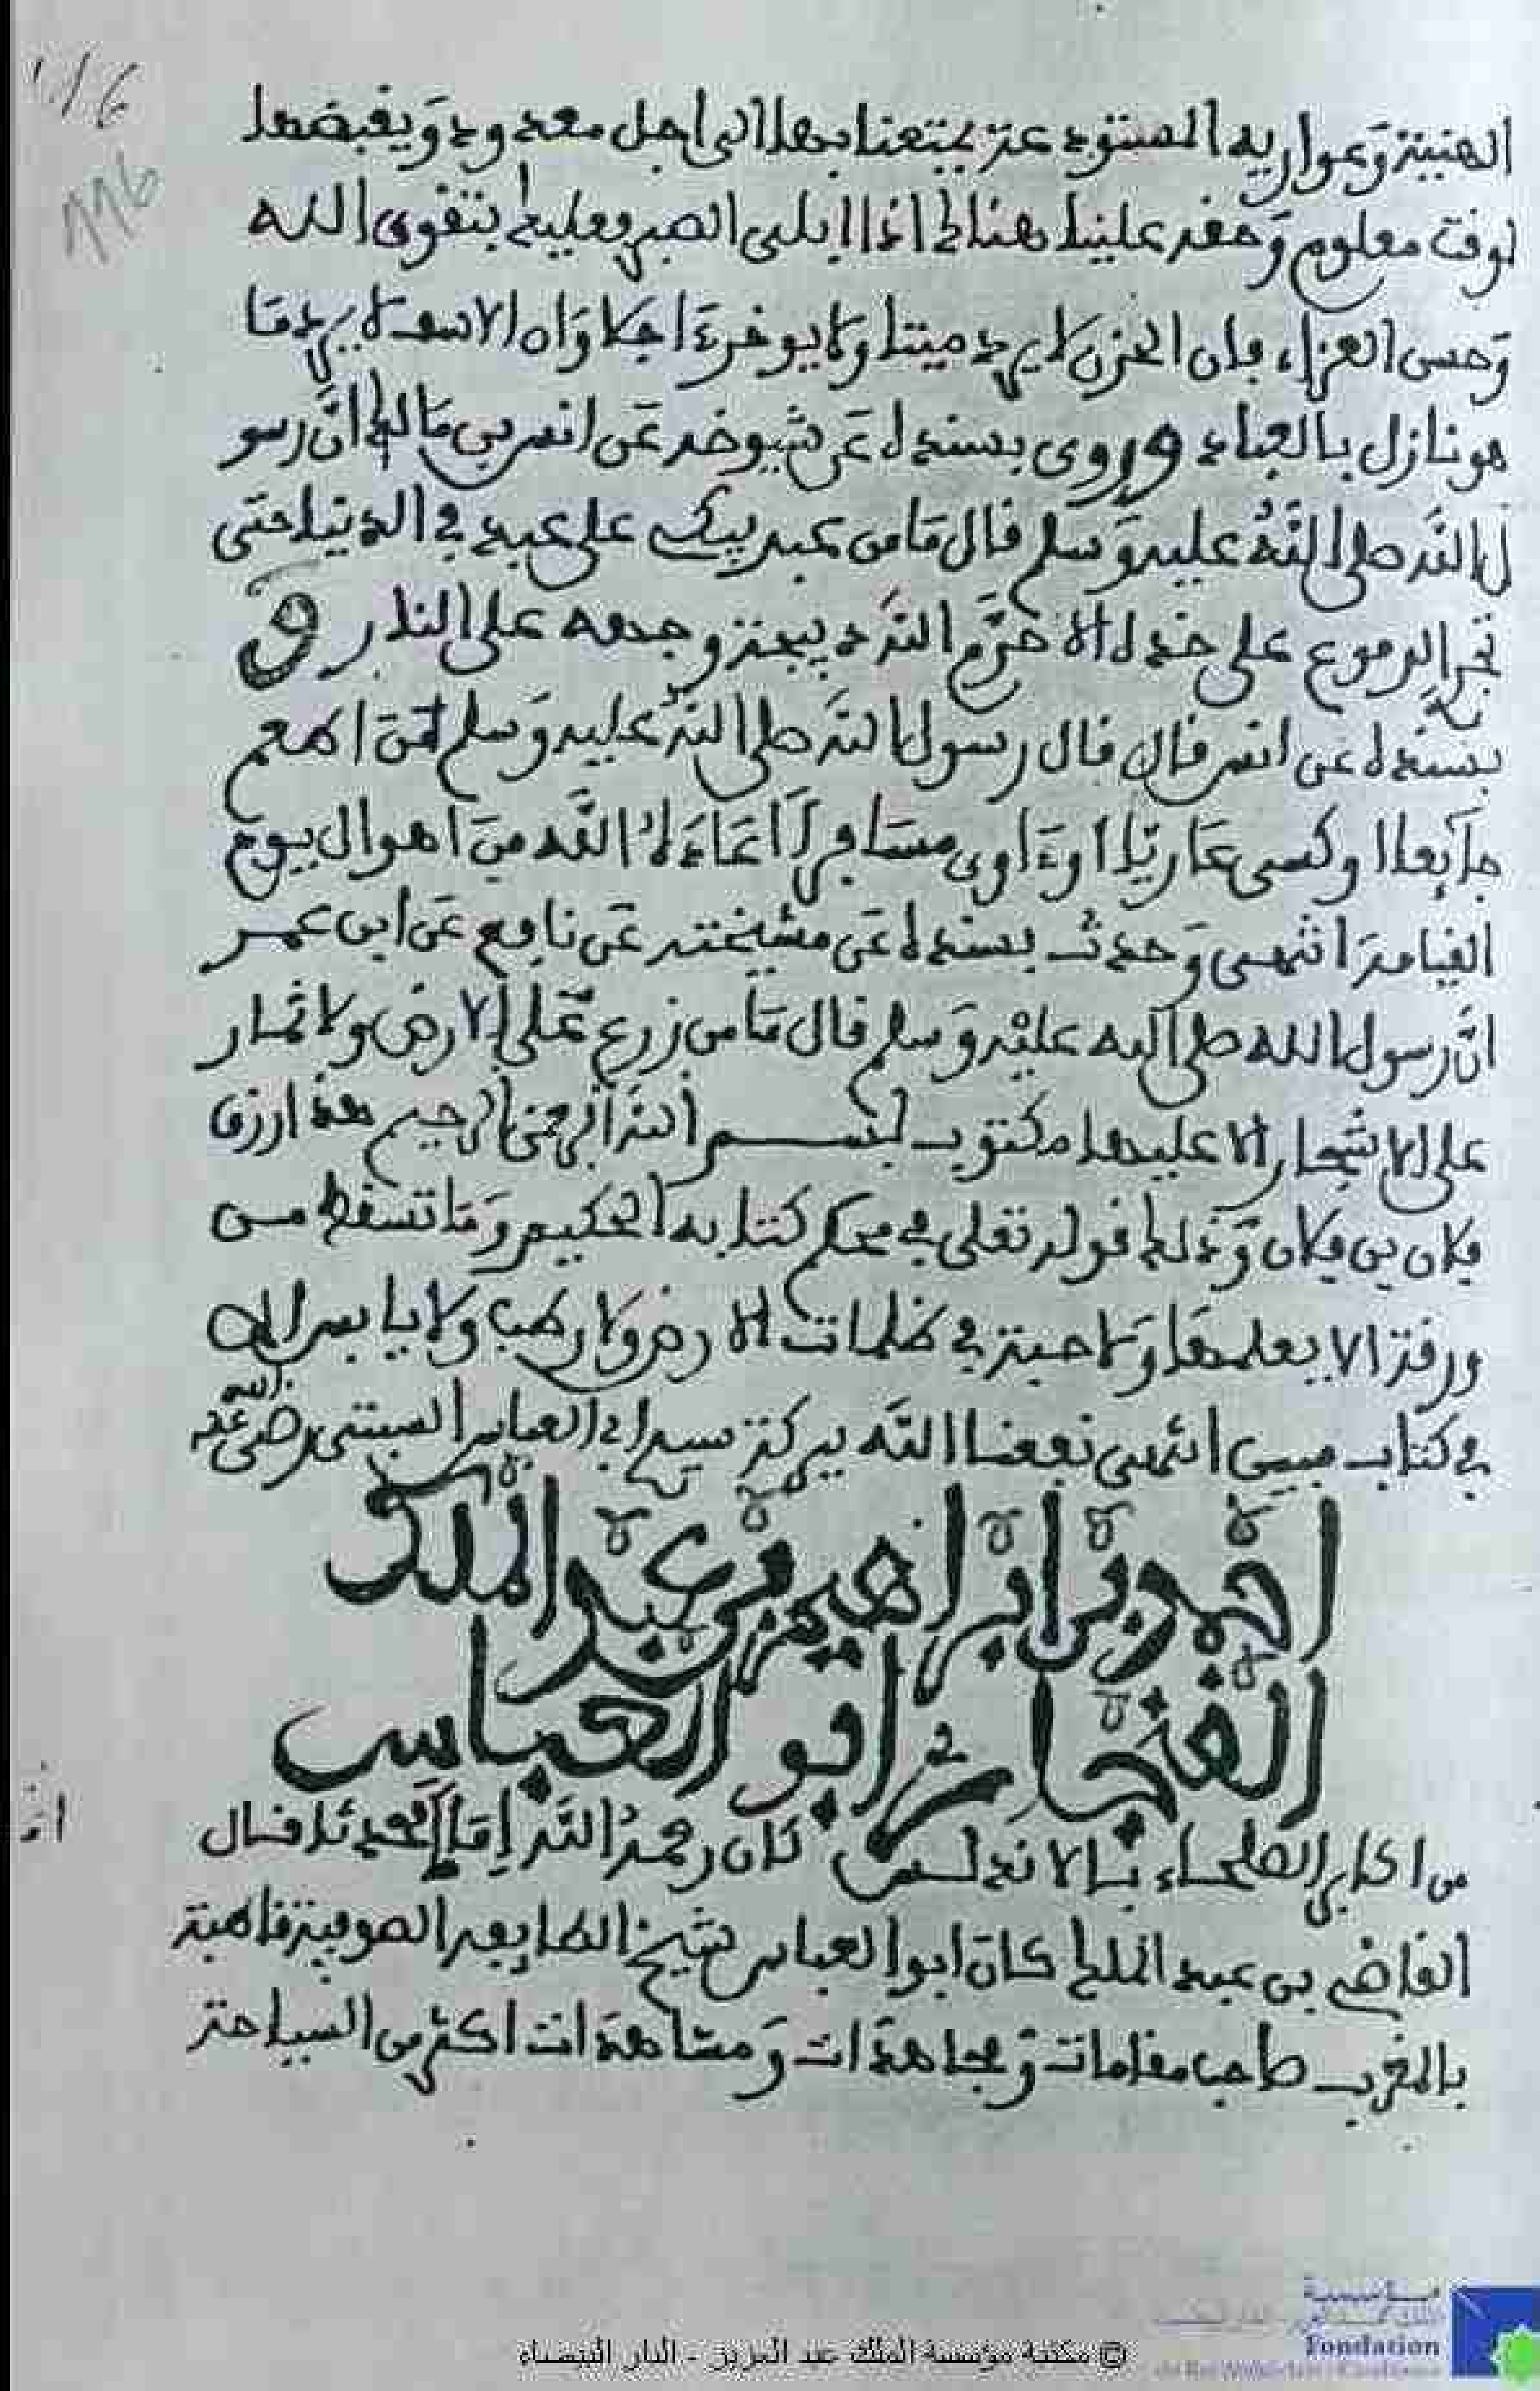 116
116
الهنيئة وعواريه المستودعة يمتعنا بها الى اجل معدود ويقبضها
لوقت معلوم وحقه علينا هناك اذا ابلى الصبر فعليك بتقوى الله
وحسن العزاء فان الحزن لا يرد ميتا ولا يوخر اجلا وان الاسف لا يرد ما
هو نازل بالعباد وروى بسنده عن شيوخه عن انس بن مالك ان رسو
ل الله صلى الله عليه وسلم قال ما من عبد يبكي على عبد في الدنيا حتى
تجر الدموع على خده الا حرم الله ديبجة وجهه على النار و
بسنده عن انس قال قال رسول الله صلى الله عليه وسلم من اطعم
جايعا او كسى عاريا او ءاوى مسافرا اعاذه الله من اهوال يوم
القيامة انتهى وحدث بسنده عن مشيخته عن نافع عن ابن عمر
ان رسول الله صلى الله عليه وسلم قال ما من زرع على الارض ولا ثمار
على الاشجار الا عليها مكتوب بسم الله الرحمن الرحيم هذا رزق
فلان بن فلان وذلك قوله تعلى في محكم كتابه الحكيم وما تسقط من
ورقة الا يعلمها ولا حبة في ظلمات الارض ولا رطب ولا يابس الا
في كتاب مبين انتهى نفعنا الله ببركة سيدي ابي العباس السبتي رضي الله عنه
احمد بن ابراهيم بن عبد الملك
الفنجايري ابو العباس
من اكابر الصلحاء بالاندلس كان رحمه الله اماما محدثا قال
القاضي بن عبد الملك كان ابو العباس شيخ الطايفة الصوفية قاطبة
بالمغرب صاحب مقامات ومجاهدات ومشاهدات اكثر من السياحة
© مكتبة مؤسسة الملك عبد العزيز - الدار البيضاء
مؤسسة
Fondation